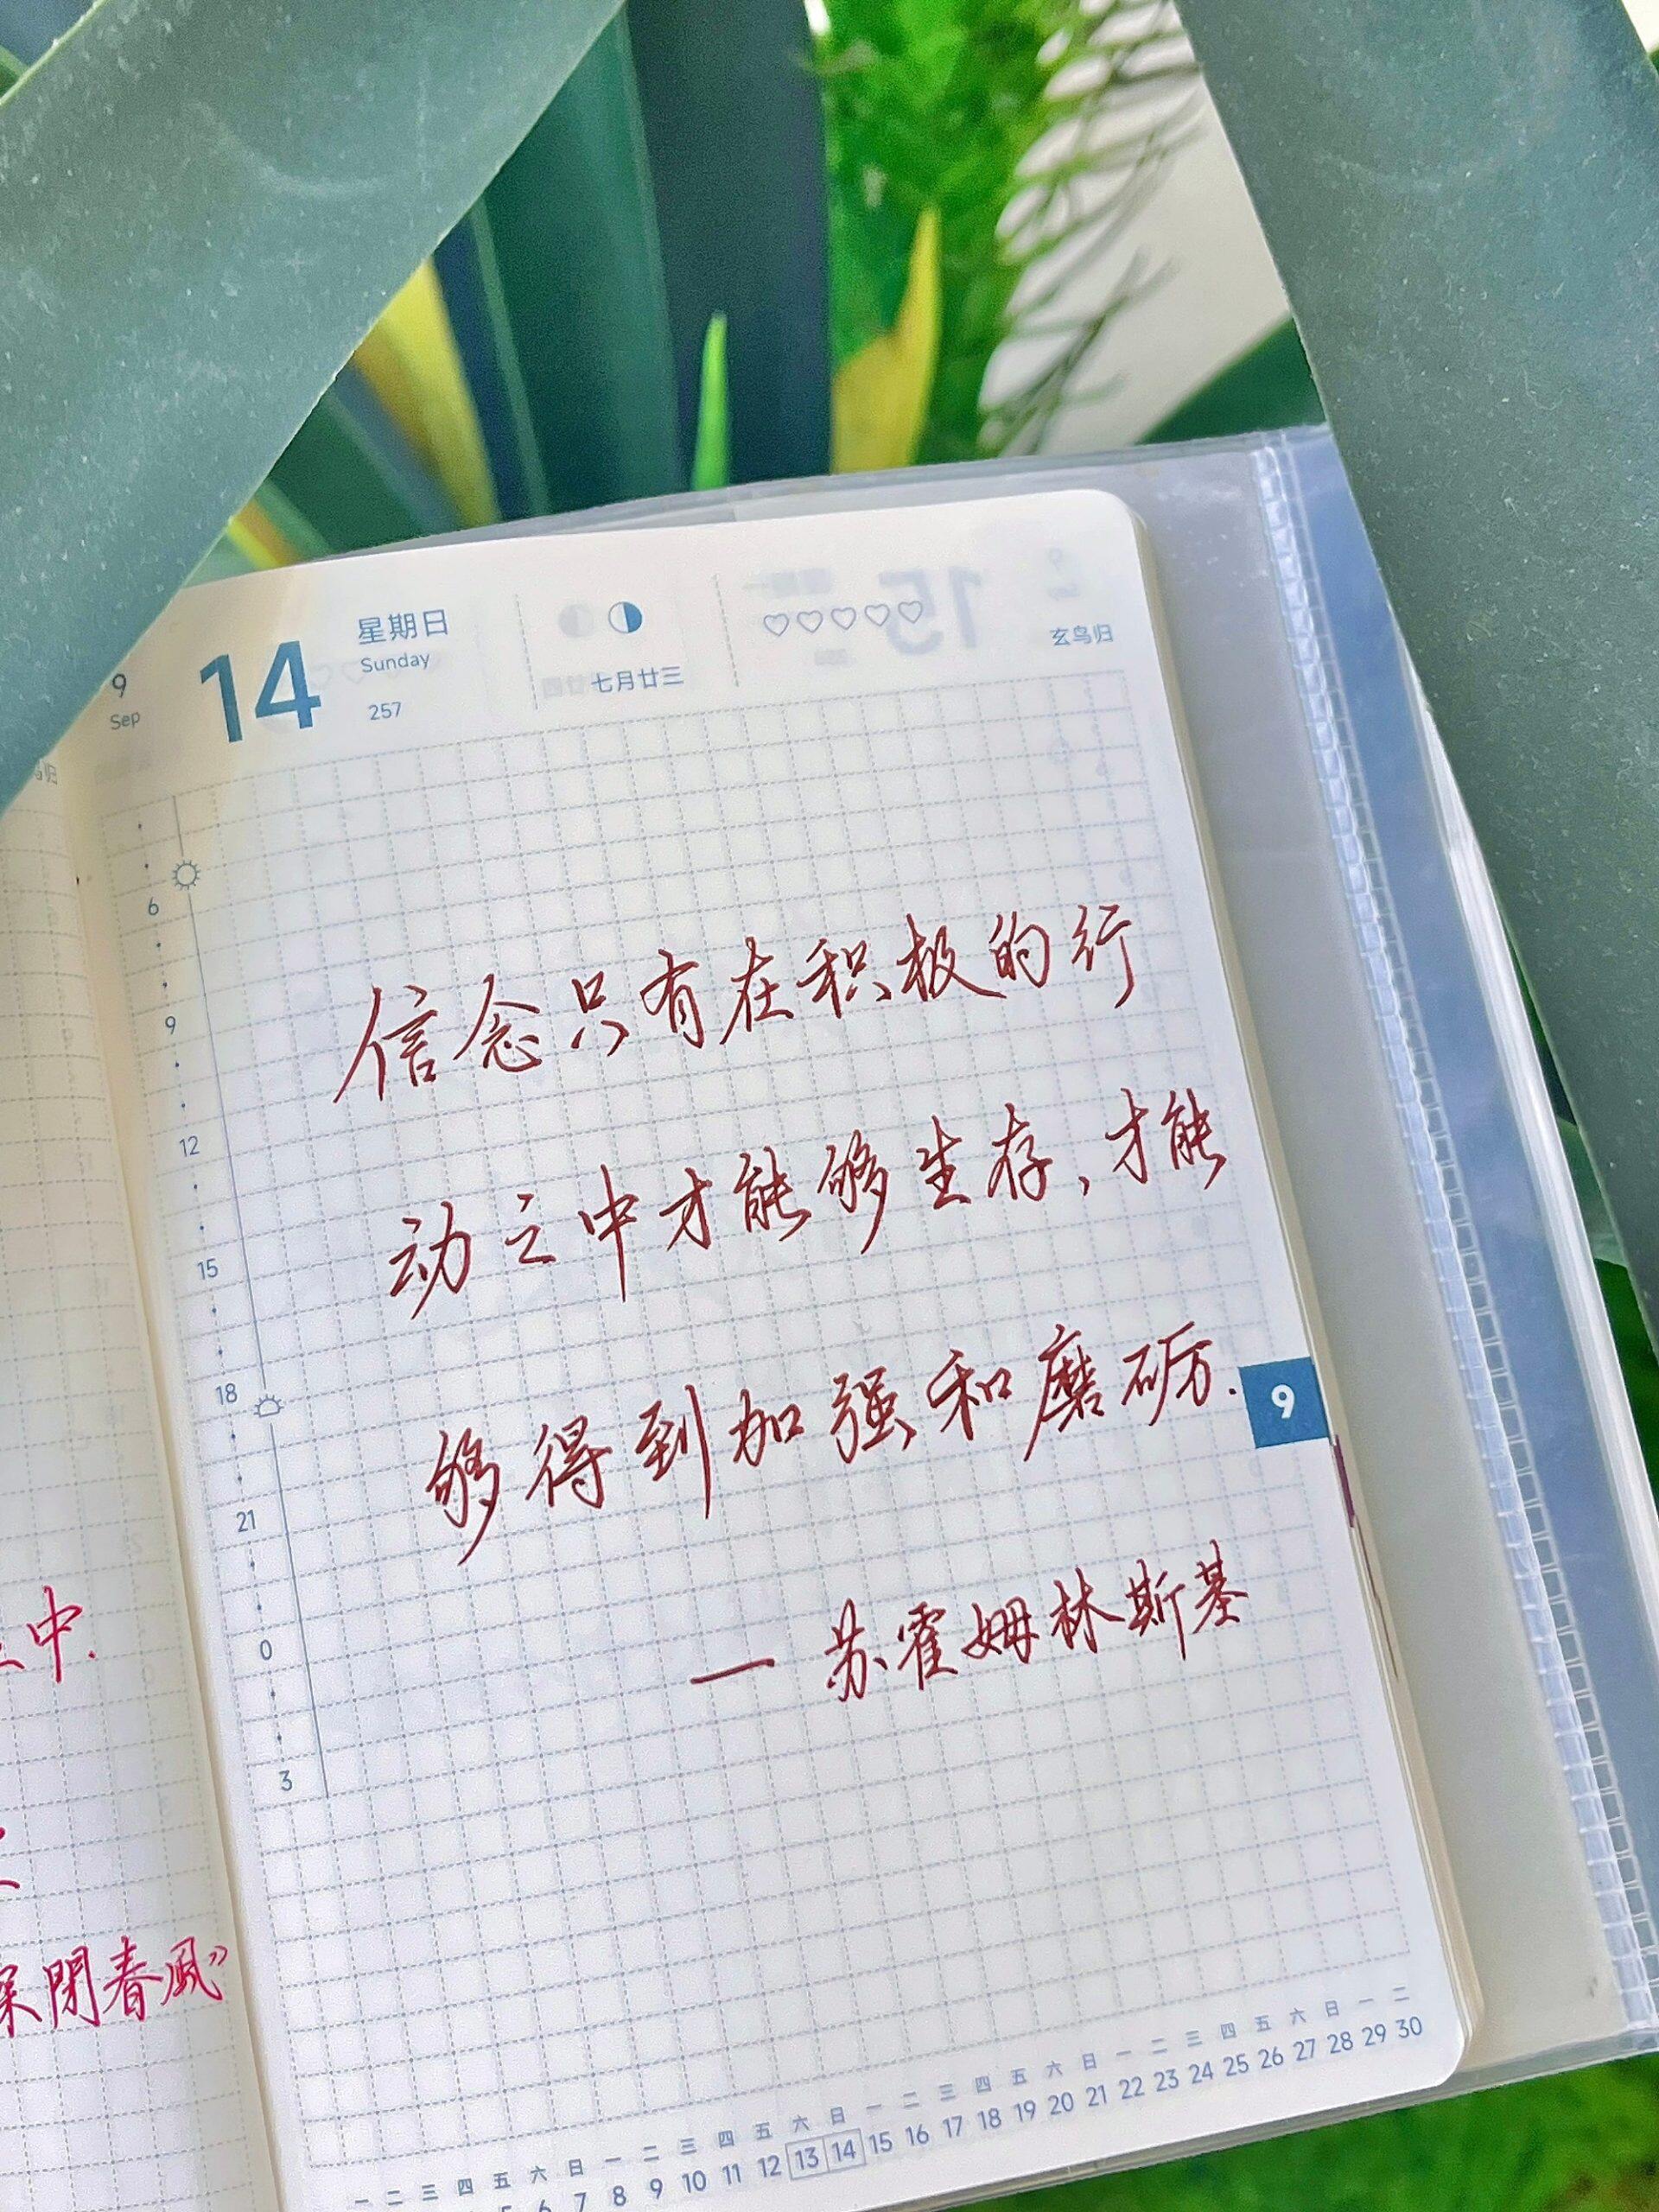 9
Sep
14
星期日
Sunday
257
七月廿三
玄鸟归
6
9
12
15
18
21
0
3
信念只有在积极的行
动之中才能够生存、才能
够得到加强和磨砺.
— 苏霍姆林斯基
9
中.
閉春風”
一 二 三 四 五 六 日 一 二 三 四 五 六 日 一 二 三 四 五 六 日 一 二 三 四 五 六 日 一 二
5 6 7 8 9 10 11 12 13 14 15 16 17 18 19 20 21 22 23 24 25 26 27 28 29 30